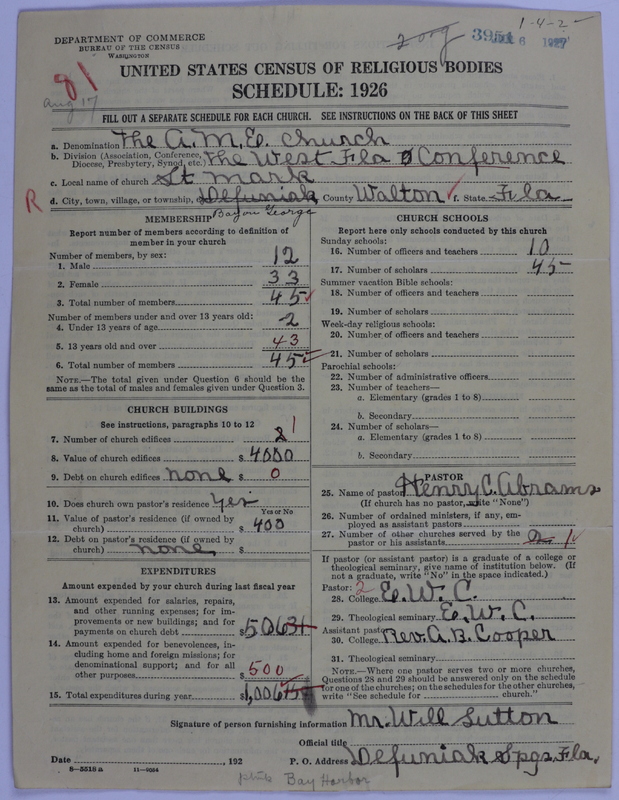 1-4-2
DEPARTMENT OF COMMERCE
BUREAU OF THE CENSUS
WASHINGTON
81
Aug 17
UNITED STATES CENSUS OF RELIGIOUS BODIES
SCHEDULE: 1926
FILL OUT A SEPARATE SCHEDULE FOR EACH CHURCH. SEE INSTRUCTIONS ON THE BACK OF THIS SHEET
a. Denomination The A.M.E. Church
b. Division (Association, Conference, Diocese, Presbytery, Synod, etc.) The West Fla Conference
c. Local name of church St Mark
R d. City, town, village, or township, Defuniak County Walton f. State Fla
Bayou George
MEMBERSHIP
Report number of members according to definition of
member in your church
Number of members, by sex:
1. Male 12
2. Female 33
3. Total number of members 45
Number of members under and over 13 years old:
4. Under 13 years of age 2
5. 13 years old and over 43
6. Total number of members 45
NOTE.—The total given under Question 6 should be the
same as the total of males and females given under Question 3.
CHURCH BUILDINGS
See instructions, paragraphs 10 to 12
7. Number of church edifices 2 1
8. Value of church edifices $ 4000
9. Debt on church edifices none $ 0
10. Does church own pastor's residence? Yes
Yes or No
11. Value of pastor's residence (if owned by
church) $ 400
12. Debt on pastor's residence (if owned by
church) none $
EXPENDITURES
Amount expended by your church during last fiscal year
13. Amount expended for salaries, repairs,
and other running expenses; for im-
provements or new buildings; and for
payments on church debt $ 50631
14. Amount expended for benevolences, in-
cluding home and foreign missions; for
denominational support; and for all
other purposes $ 500
15. Total expenditures during year $ 1,006
CHURCH SCHOOLS
Report here only schools conducted by this church
Sunday schools:
16. Number of officers and teachers 10
17. Number of scholars 45
Summer vacation Bible schools:
18. Number of officers and teachers
19. Number of scholars
Week-day religious schools:
20. Number of officers and teachers
21. Number of scholars
Parochial schools:
22. Number of administrative officers
23. Number of teachers—
a. Elementary (grades 1 to 8)
b. Secondary
24. Number of scholars—
a. Elementary (grades 1 to 8)
b. Secondary
PASTOR
25. Name of pastor Henry C. Abrams
(If church has no pastor, write "None")
26. Number of ordained ministers, if any, em-
ployed as assistant pastors
27. Number of other churches served by the
pastor or his assistants 1
If pastor (or assistant pastor) is a graduate of a college or
theological seminary, give name of institution below. (If
not a graduate, write "No" in the space indicated.)
Pastor: 2
28. College E. W. C.
29. Theological seminary E. W. C.
Assistant pastor
30. College Rev. A. B. Cooper
31. Theological seminary
NOTE.—Where one pastor serves two or more churches,
Questions 28 and 29 should be answered only on the schedule
for one of the churches; on the schedules for the other churches,
write "See schedule for church."
Signature of person furnishing information Mr. Will Sutton
Official title
Date , 192 P. O. Address Defuniak Spgs. Fla.
8-5518a 11-9064
Bay Harbor